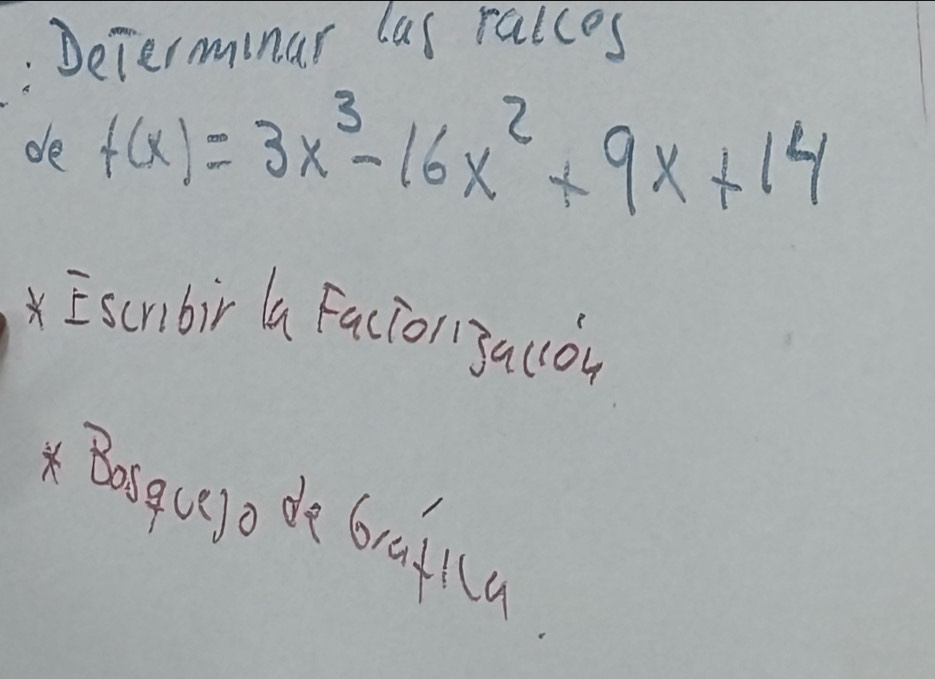 : Determinar las raices
de f(x) = 3x³ - 16x² + 9x + 14
* Escribir la Factorización
* Bosquejo de Gráfica.